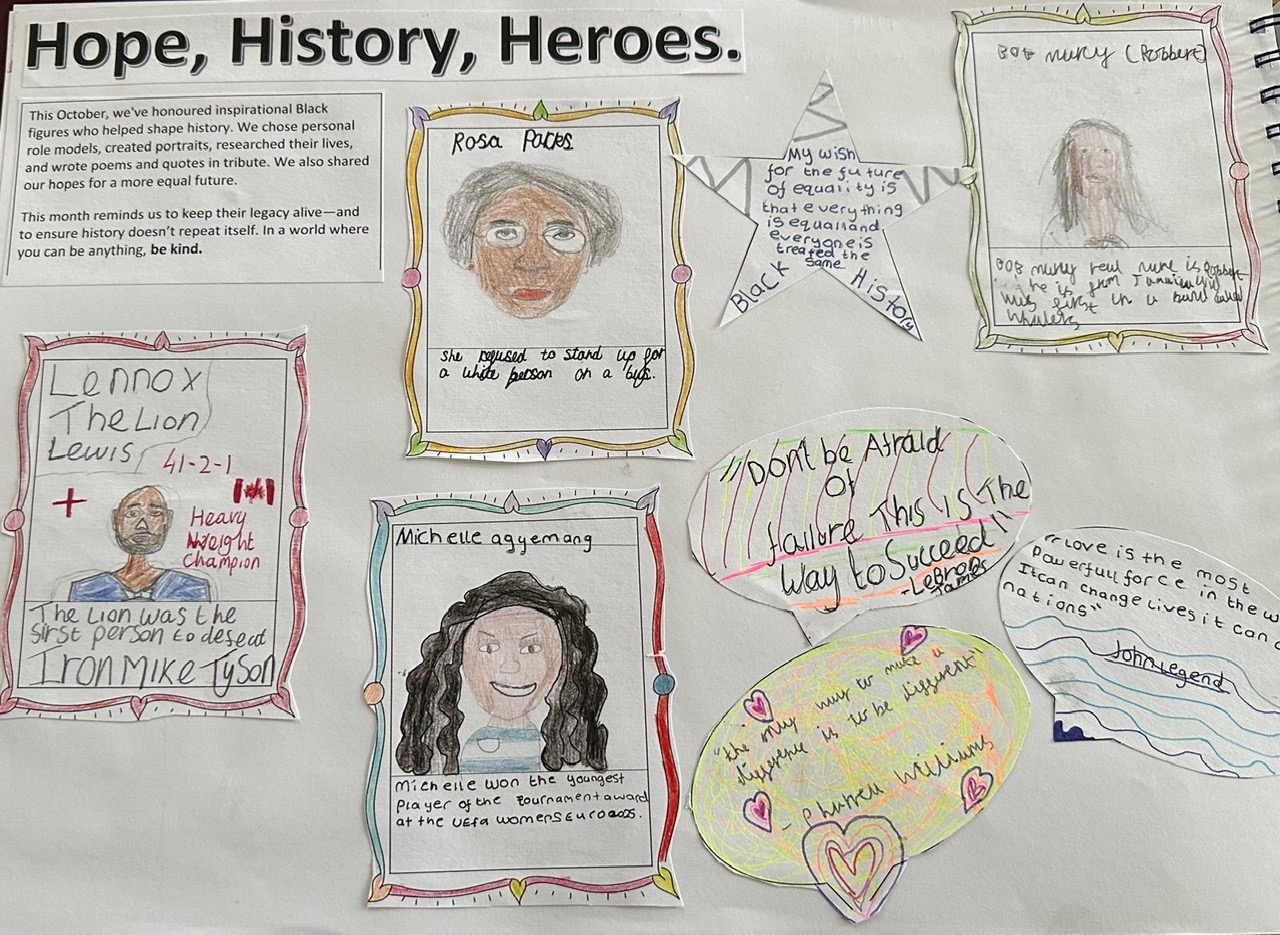 Hope, History, Heroes.
This October, we've honoured inspirational Black
figures who helped shape history. We chose personal
role models, created portraits, researched their lives,
and wrote poems and quotes in tribute. We also shared
our hopes for a more equal future.
This month reminds us to keep their legacy alive—and
to ensure history doesn't repeat itself. In a world where
you can be anything, be kind.
Rosa Parks
she refused to stand up for
a white person on a bus.
My wish
for the future
of equality is
that everything
is equal and
everyone is
treated the
same
Black History
BOB murly (Robbert)
BOB murly real nume is Robbert
he is from Jamaica
wus first in a band called
Whalers
Lennox
The Lion
Lewis
41-2-1
Heavy
Weight
Champion
The Lion was the
first person to defeat
Iron Mike Tyson
Michelle agyemang
Michelle won the youngest
player of the tournament award
at the UEfa womens Euro 2025.
"Don't be Afraid
Of
failure This is The
Way to Succeed!"
-LeBron
James
"Love is the most
Powerfull force in the w
It can change lives it can c
nations"
John Legend
"the only way to make a
difference is to be different"
- Pharrell Williams